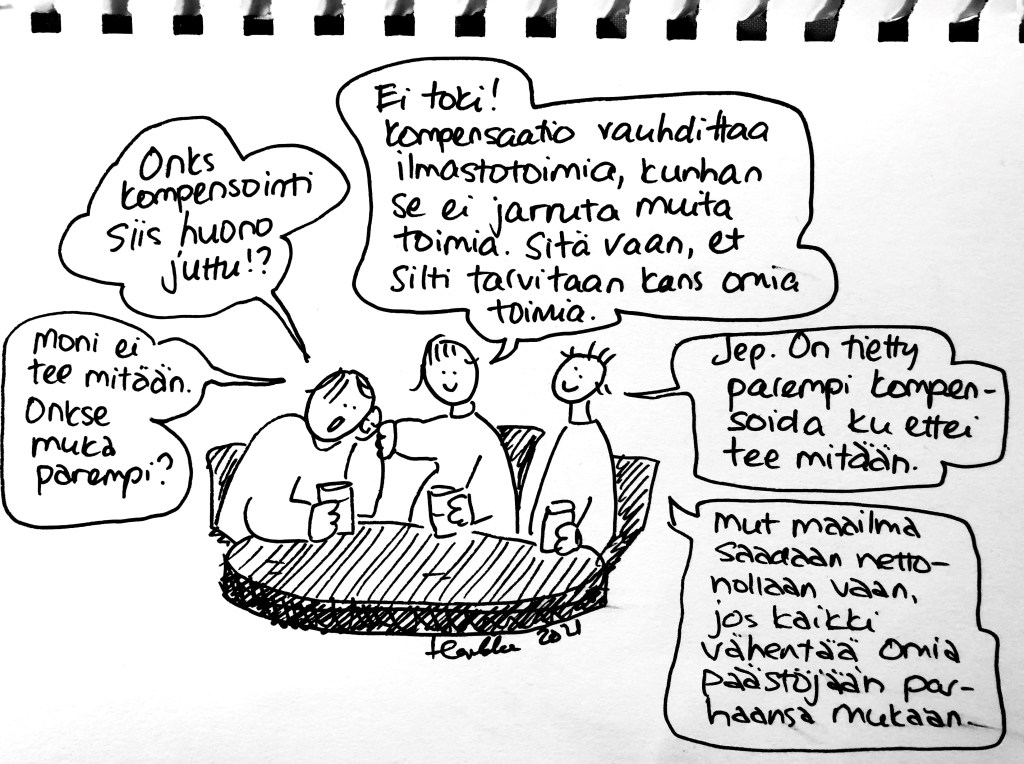 Onks
kompensointi
siis huono
juttu!?
Moni ei
tee mitään.
Onkse
muka
parempi?
Ei toki!
kompensaatio vauhdittaa
ilmastotoimia, kunhan
se ei jarruta muita
toimia. Sitä vaan, et
silti tarvitaan kans omia
toimia.
Jep. On tietty
parempi kompen-
soida ku ettei
tee mitään.
Mut maailma
saadaan netto-
nollaan vaan,
jos kaikki
vähentää omia
päästöjään par-
haansa mukaan.
2021